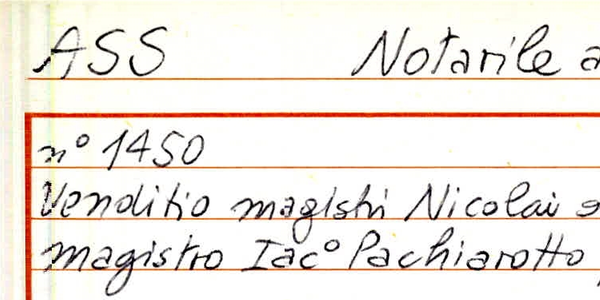 ASS Notarile a
n° 1450
Venditio magistri Nicolai
magistro Iac° Pachiarotto